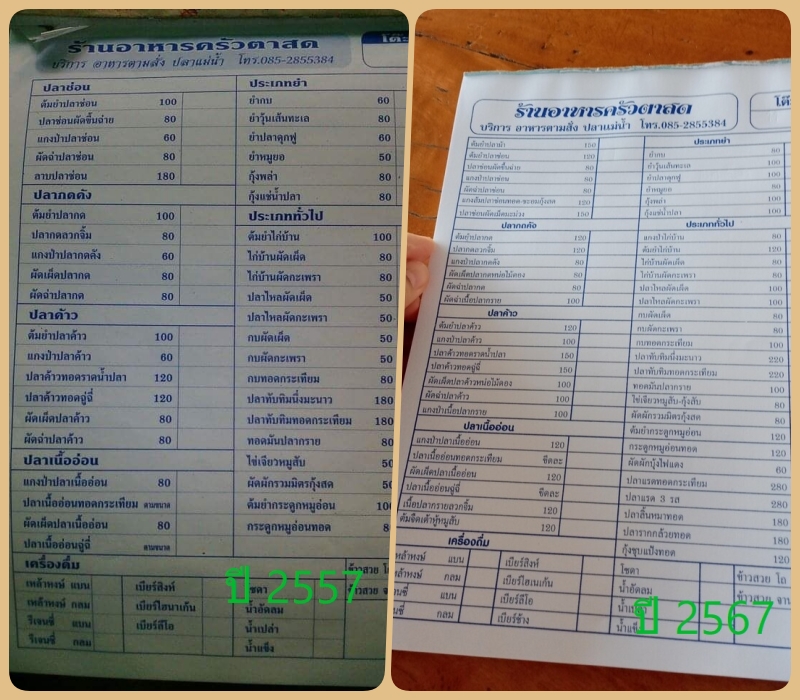 ร้านอาหารครัวตาสด
บริการ อาหารตามสั่ง ปลาแม่น้ำ โทร.085-2855384
โต๊ะ
ปลาช่อน
ต้มยำปลาช่อน 100
ปลาช่อนผัดขึ้นฉ่าย 80
แกงป่าปลาช่อน 60
ผัดฉ่าปลาช่อน 80
ลาบปลาช่อน 180
ปลากดคัง
ต้มยำปลากด 100
ปลากดลวกจิ้ม 80
แกงป่าปลากดคัง 60
ผัดเผ็ดปลากด 80
ผัดฉ่าปลากด 80
ปลาค้าว
ต้มยำปลาค้าว 100
แกงป่าปลาค้าว 60
ปลาค้าวทอดราดน้ำปลา 120
ปลาค้าวทอดฉู่ฉี่ 120
ผัดเผ็ดปลาค้าว 80
ผัดฉ่าปลาค้าว 80
ปลาเนื้ออ่อน
แกงป่าปลาเนื้ออ่อน 80
ปลาเนื้ออ่อนทอดกระเทียม ตามขนาด
ผัดเผ็ดปลาเนื้ออ่อน 80
ปลาเนื้ออ่อนฉู่ฉี่ ตามขนาด
เครื่องดื่ม
เหล้าหงษ์ แบน
เหล้าหงษ์ กลม
รีเจนซี่ แบน
รีเจนซี่ กลม
เบียร์สิงห์
เบียร์ไฮนาเก้น
เบียร์ลีโอ
ประเภทยำ
ยำกบ 60
ยำวุ้นเส้นทะเล 80
ยำปลาดุกฟู 60
ยำหมูยอ 50
กุ้งพล่า 80
กุ้งแช่น้ำปลา 80
ประเภททั่วไป
ต้มยำไก่บ้าน 100
ไก่บ้านผัดเผ็ด 80
ไก่บ้านผัดกะเพรา 80
ปลาไหลผัดเผ็ด 50
ปลาไหลผัดกะเพรา 50
กบผัดเผ็ด 50
กบผัดกะเพรา 50
กบทอดกระเทียม 80
ปลาทับทิมนึ่งมะนาว 180
ปลาทับทิมทอดกระเทียม 180
ทอดมันปลากราย 80
ไข่เจียวหมูสับ 50
ผัดผักรวมมิตรกุ้งสด
ต้มยำกระดูกหมูอ่อน
กระดูกหมูอ่อนทอด
โซดา
น้ำอัดลม
น้ำเปล่า
น้ำแข็ง
ข้าวสวย โถ
ข้าวสวย
ปี 2557
ร้านอาหารครัวตาสด
บริการ อาหารตามสั่ง ปลาแม่น้ำ โทร.085-2855384
โต๊
ต้มยำปลาม้า 150
ต้มยำปลาช่อน 120
ปลาช่อนผัดขึ้นฉ่าย 80
แกงป่าปลาช่อน 80
ผัดฉ่าปลาช่อน 80
แกงส้มปลาช่อนทอด-ชะอมกุ้งสด 120
ปลาช่อนผัดเม็ดมะม่วง 150
ปลากดคัง
ต้มยำปลากด 120
ปลากดลวกจิ้ม 120
แกงป่าปลากดคัง 80
ผัดเผ็ดปลากดหน่อไม้ดอง 80
ผัดฉ่าปลากด 80
ผัดฉ่าเนื้อปลากราย 100
ปลาค้าว
ต้มยำปลาค้าว 120
แกงป่าปลาค้าว 100
ปลาค้าวทอดราดน้ำปลา 150
ปลาค้าวทอดฉู่ฉี่ 150
ผัดเผ็ดปลาค้าวหน่อไม้ดอง 100
ผัดฉ่าปลาค้าว 100
แกงป่าเนื้อปลากราย 100
ปลาเนื้ออ่อน
แกงป่าปลาเนื้ออ่อน 120
ปลาเนื้ออ่อนทอดกระเทียม ขีดละ
ผัดเผ็ดปลาเนื้ออ่อน 120
ปลาเนื้ออ่อนฉู่ฉี่ ขีดละ
เนื้อปลากรายลวกจิ้ม 120
ต้มจืดเต้าหู้หมูสับ 120
เครื่องดื่ม
เหล้าหงษ์ แบน
หงษ์ กลม
แบน
กลม
เบียร์สิงห์
เบียร์ไฮเนเก้น
เบียร์ลีโอ
เบียร์ช้าง
ประเภทยำ
ยำกบ 80
ยำวุ้นเส้นทะเล 100
ยำปลาดุกฟู 100
ยำหมูยอ 80
กุ้งพล่า 100
กุ้งแช่น้ำปลา 100
ประเภททั่วไป
แกงป่าไก่บ้าน 80
ต้มยำไก่บ้าน 120
ไก่บ้านผัดเผ็ด 80
ไก่บ้านผัดกะเพรา 80
ปลาไหลผัดเผ็ด 100
ปลาไหลผัดกะเพรา 100
กบผัดเผ็ด 80
กบผัดกะเพรา 80
กบทอดกระเทียม 100
ปลาทับทิมนึ่งมะนาว 220
ปลาทับทิมทอดกระเทียม 220
ทอดมันปลากราย 100
ไข่เจียวหมูสับ-กุ้งสับ 80
ผัดผักรวมมิตรกุ้งสด 80
ต้มยำกระดูกหมูอ่อน 120
กระดูกหมูอ่อนทอด 120
ผัดผักบุ้งไฟแดง 60
ปลาแรดทอดกระเทียม 280
ปลาแรด 3 รส 280
ปลาสิ้นหมาทอด 180
ปลารากกล้วยทอด 180
กุ้งชุบแป้งทอด 120
โซดา
น้ำอัดลม
น้ำแข็ง
ข้าวสวย โถ
ข้าวสวย จาน
ปี 2567